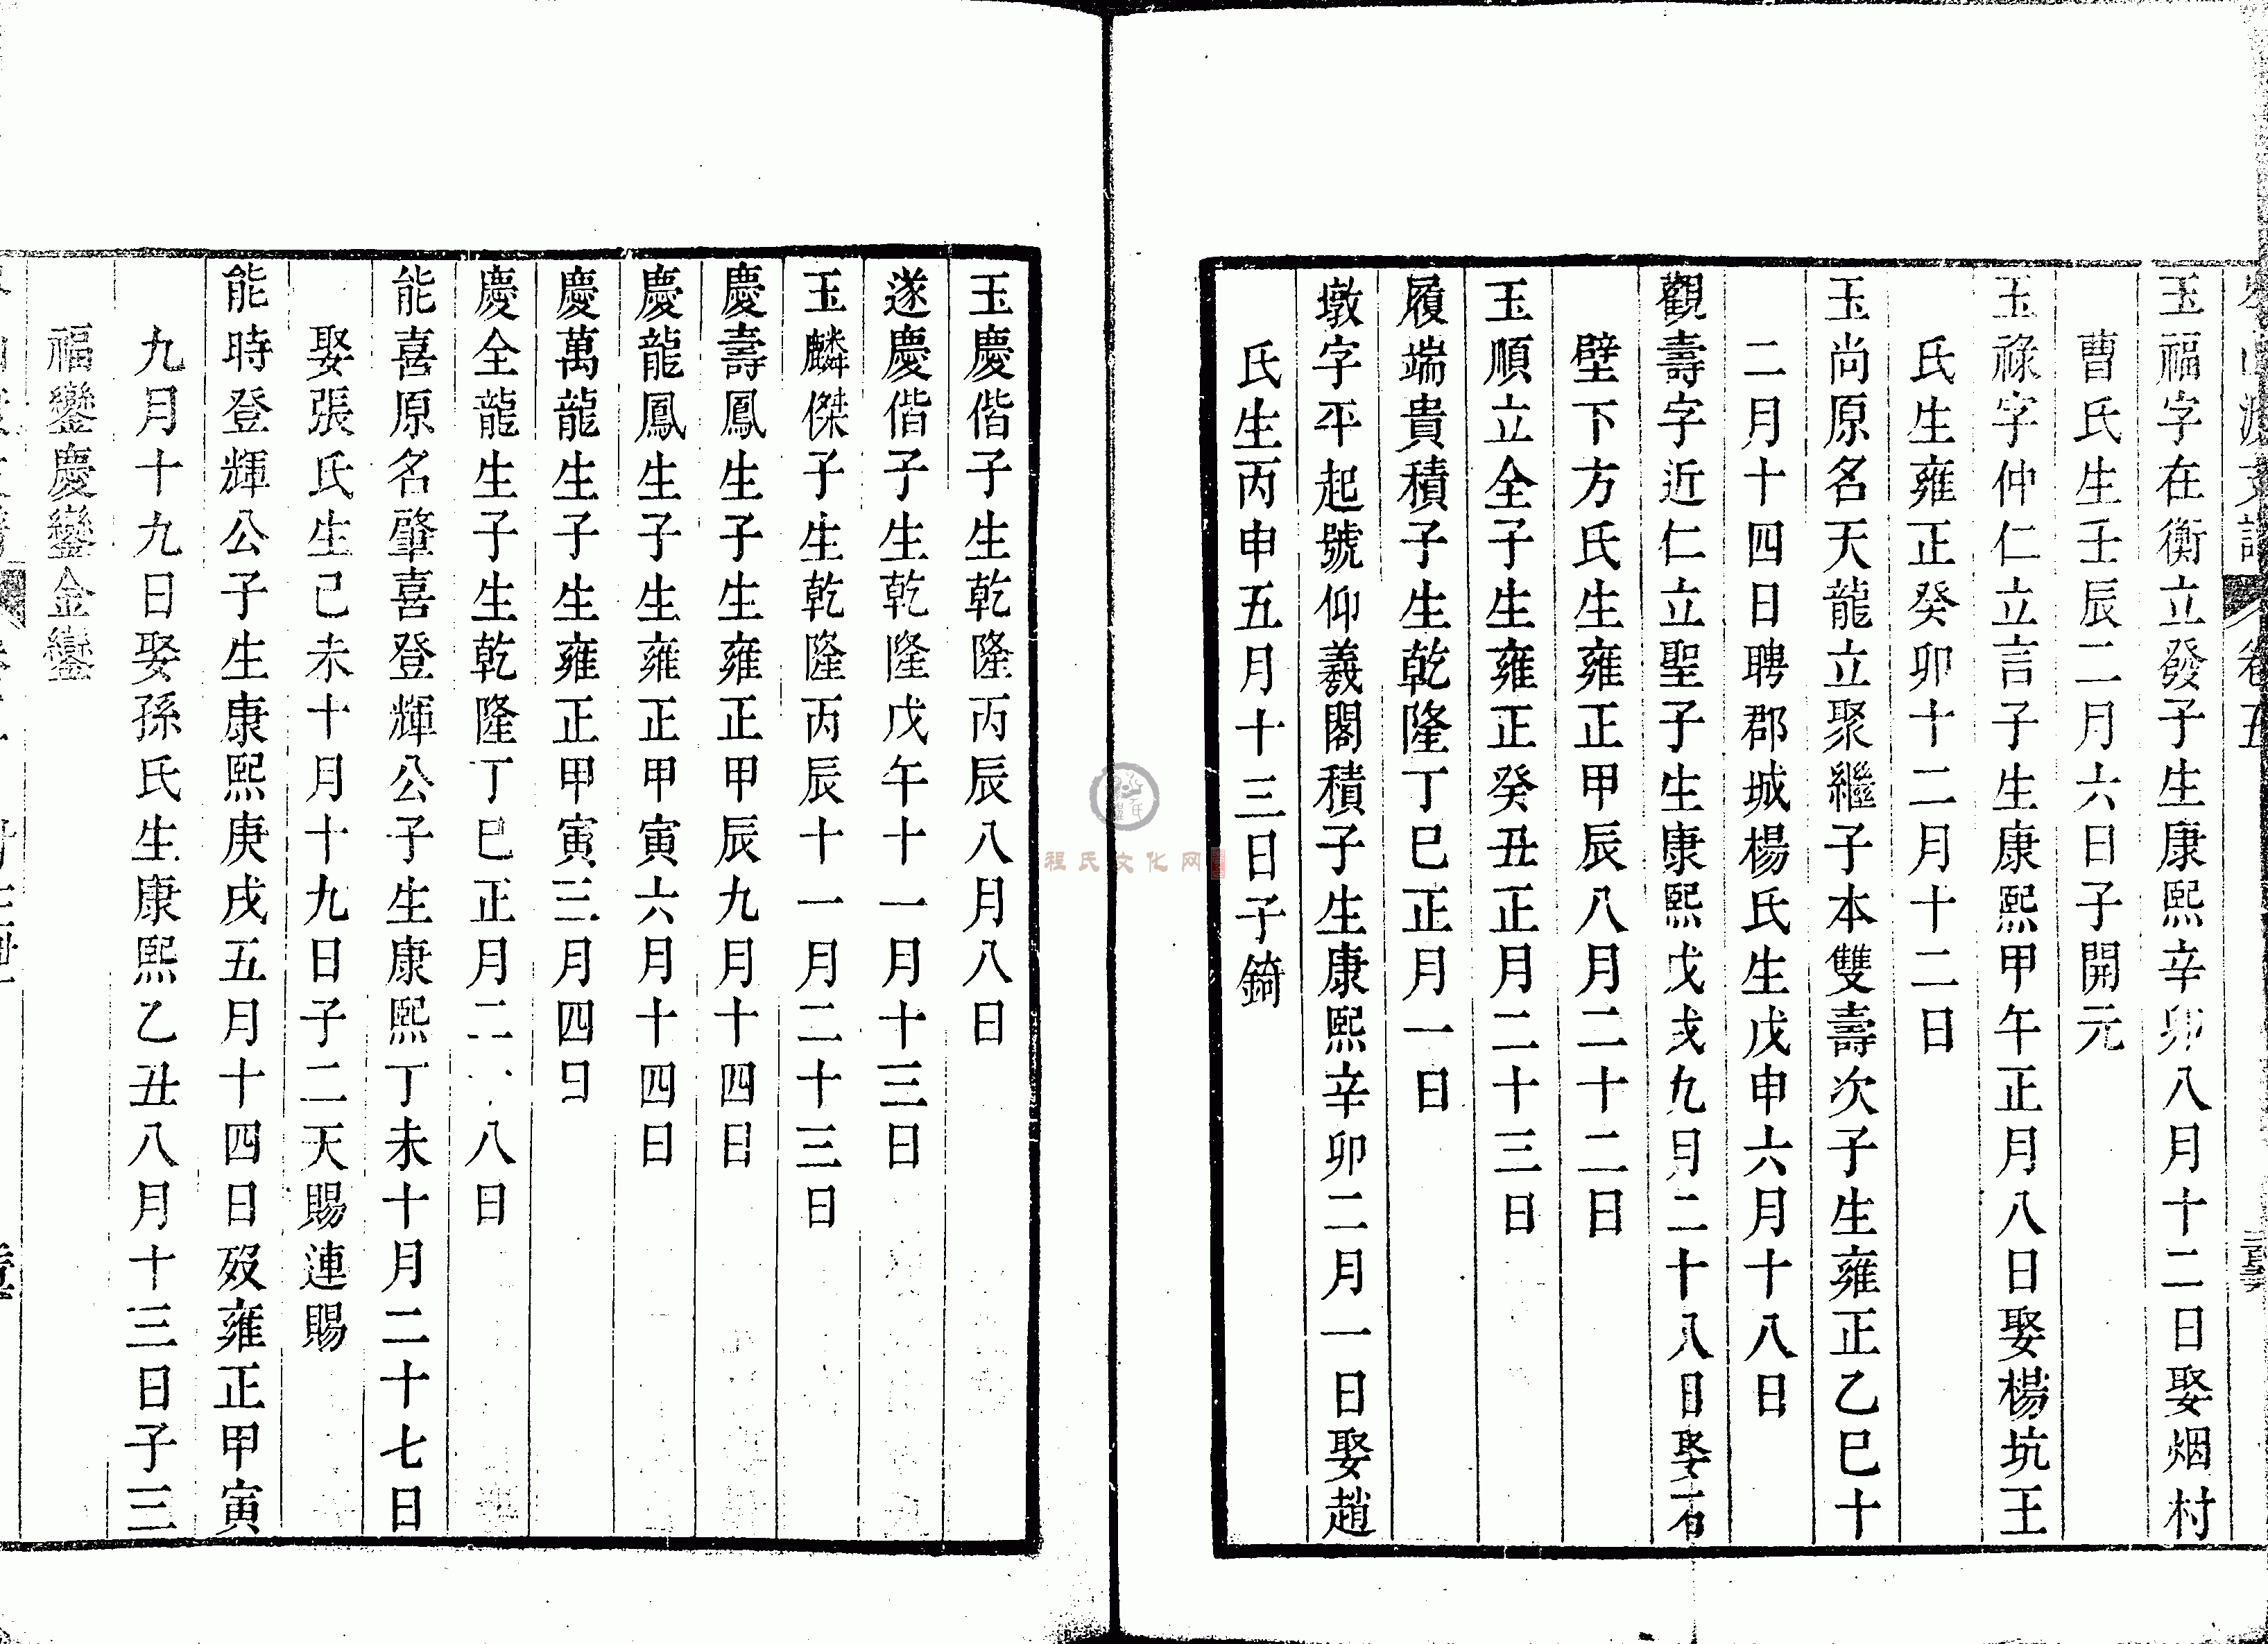 卷五
玉福字在衡立發子生康熙辛卯八月十二日娶烟村
曹氏生壬辰二月六日子開元
玉祿字仲仁立言子生康熙甲午正月八日娶楊坑王
氏生雍正癸卯十二月十二日
玉尚原名天龍立聚繼子本雙壽次子生雍正乙巳十
二月十四日聘郡城楊氏生戊申六月十八日
觀壽字近仁立聖子生康熙戊戌九月二十八日娶石
壁下方氏生雍正甲辰八月二十二日
玉順立全子生雍正癸丑正月二十三日
履端貴積子生乾隆丁巳正月一日
墩字平起號仰羲閣積子生康熙辛卯二月一日娶趙
氏生丙申五月十三日子錡
玉慶偕子生乾隆丙辰八月八日
遂慶偕子生乾隆戊午十一月十三日
玉麟傑子生乾隆丙辰十一月二十三日
慶壽鳳生子生雍正甲辰九月十四日
慶龍鳳生子生雍正甲寅六月十四日
慶萬龍生子生雍正甲寅三月四日
慶全龍生子生乾隆丁巳正月二八日
能喜原名肇喜登輝公子生康熙丁未十月二十七日
娶張氏生己未十月十九日子二天賜連賜
能時登輝公子生康熙庚戌五月十四日歿雍正甲寅
九月十九日娶孫氏生康熙乙丑八月十三日子三
福鑾慶鑾金鑾
程氏文化网